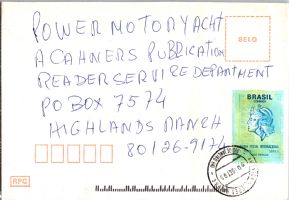 POWER MOTORYACHT
A CAHNERS PUBLICATION
READER SERVICE DEPARTMENT
PO BOX 7574
HIGHLANDS RANCH
80126-9174
SELO
BRASIL
RPC